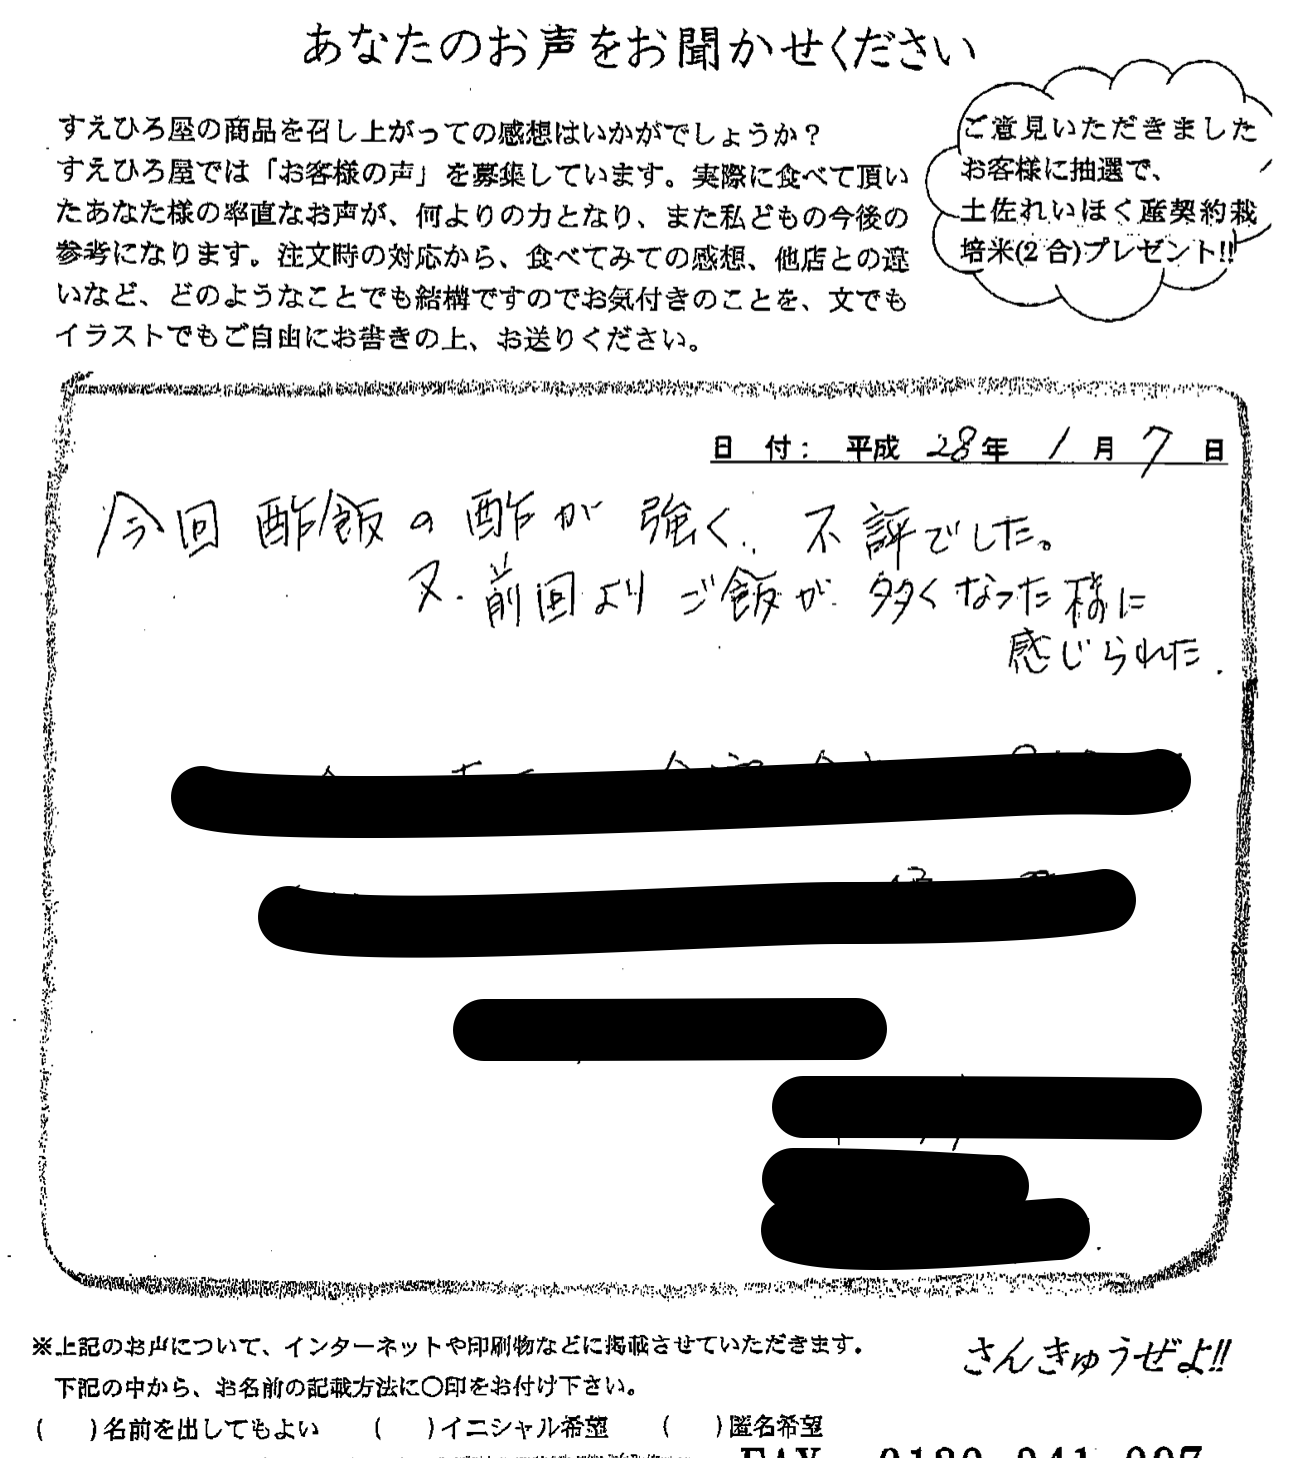 あなたのお声をお聞かせください
すえひろ屋の商品を召し上がっての感想はいかがでしょうか？
すえひろ屋では「お客様の声」を募集しています。実際に食べて頂い
たあなた様の率直なお声が、何よりの力となり、また私どもの今後の
参考になります。注文時の対応から、食べてみての感想、他店との違
いなど、どのようなことでも結構ですのでお気付きのことを、文でも
イラストでもご自由にお書きの上、お送りください。
ご意見いただきました
お客様に抽選で、
土佐れいほく産契約栽
培米(2合)プレゼント!!
日 付： 平成 28年 1月 7日
今回 酢飯の酢が 強く、不評でした。
又、前回より ご飯が 多くなった様に
感じられた.
※上記のお声について、インターネットや印刷物などに掲載させていただきます。
下記の中から、お名前の記載方法に〇印をお付け下さい。
さんきゅうぜよ!!
( )名前を出してもよい ( )イニシャル希望 ( )匿名希望